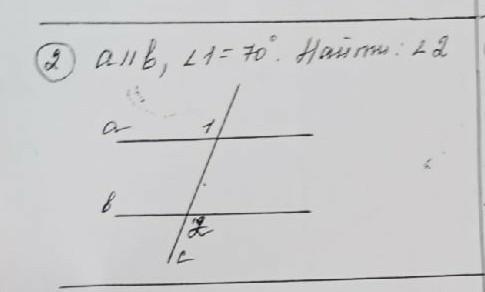 2 a || b, ∠1 = 70°. Найти: ∠2
a
1
b
2
c